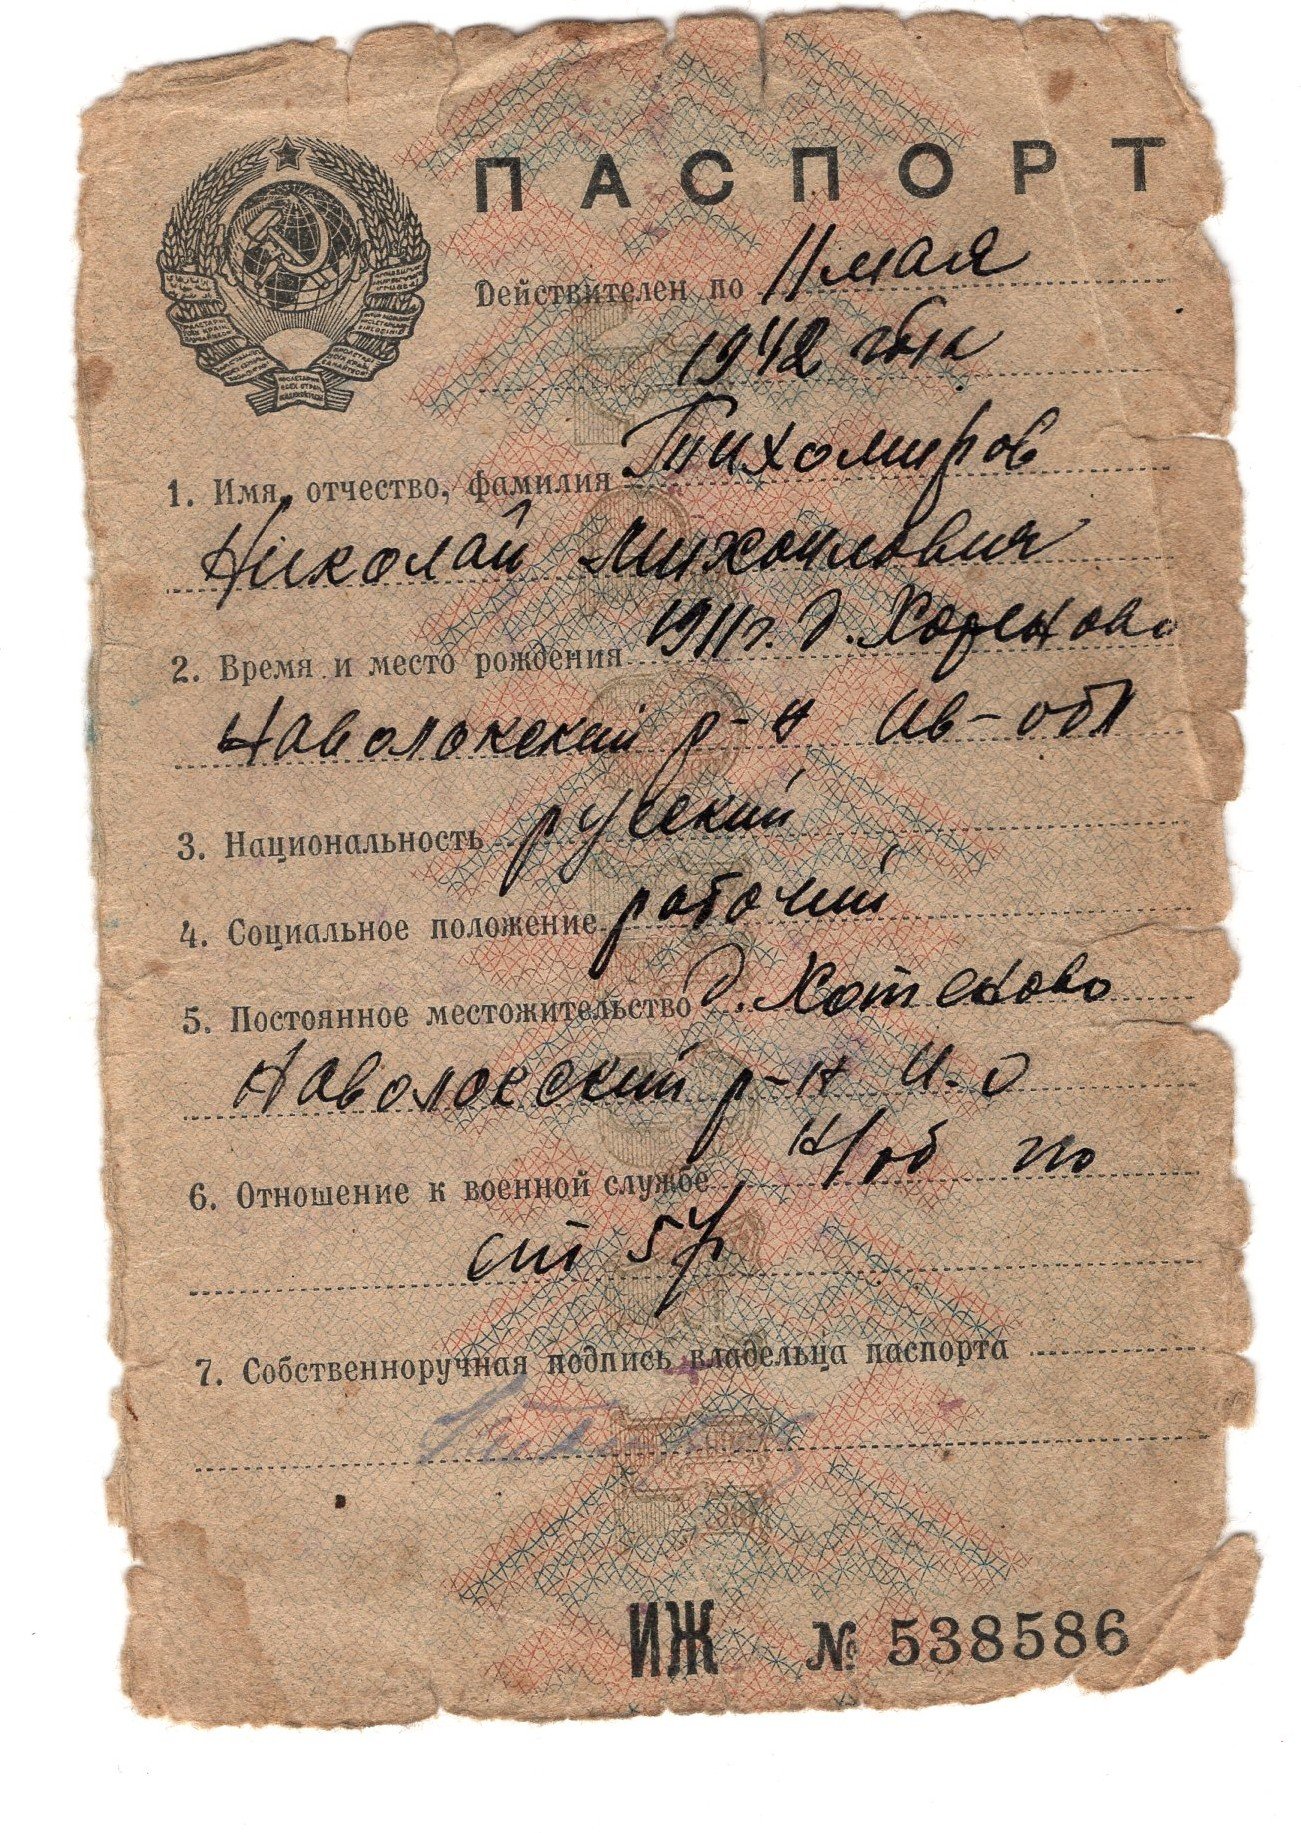 ПАСПОРТ
Действителен по 11 мая
1942 года
1. Имя, отчество, фамилия Тихомиров
Николай Михайлович
2. Время и место рождения 1911 г. д.
Наволокский р-н Ив-обл
3. Национальность русский
4. Социальное положение рабочий
5. Постоянное местожительство д. Хотеново
Наволокский р-н И-о
6. Отношение к военной службе Н/об по
ст
7. Собственноручная подпись владельца паспорта
ИЖ № 538586